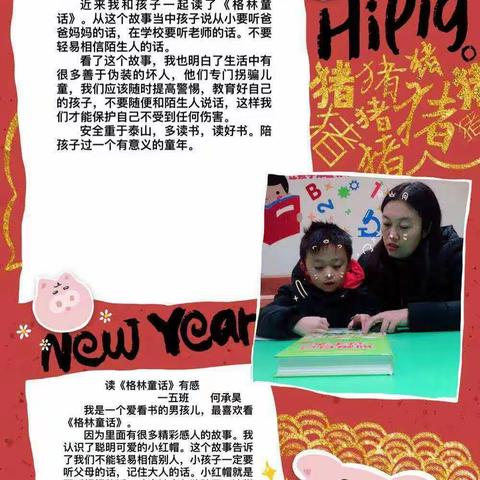 近来我和孩子一起读了《格林童
话》。从这个故事当中孩子说从小要听爸
爸妈妈的话，在学校要听老师的话。不要
轻易相信陌生人的话。
看了这个故事，我也明白了生活中有
很多善于伪装的坏人，他们专门拐骗儿
童，我们应该随时提高警惕，教育好自己
的孩子，不要随便和陌生人说话，这样我
们才能保护自己不受到任何伤害。
安全重于泰山，多读书，读好书。陪
孩子过一个有意义的童年。
Hi Pig
猪 猪 猪 猪
猪 猪 猪
猪 猪
B
2
New Year
读《格林童话》有感
一五班 何承昊
我是一个爱看书的男孩儿，最喜欢看
《格林童话》。
因为里面有很多精彩感人的故事。我
认识了聪明可爱的小红帽。这个故事告诉
了我们不能轻易相信别人，小孩子一定要
听父母的话，记住大人的话。小红帽就是